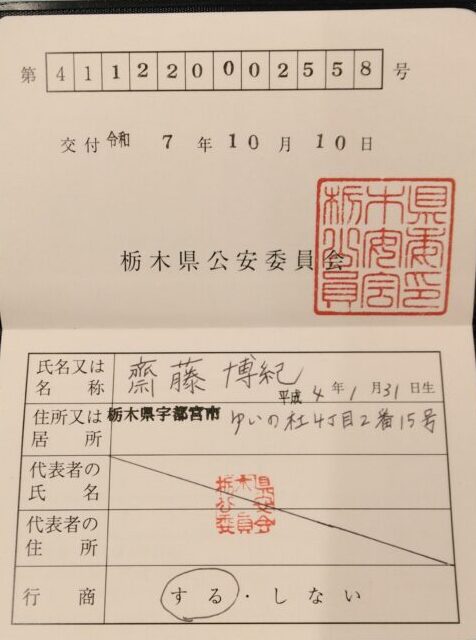 第 411220002558 号
交付 令和 7 年 10 月 10 日
栃木県公安委員会
栃木県公安委員会印
氏名又は名称 齋藤 博紀 平成 4 年 1 月 31 日生
住所又は居所 栃木県宇都宮市 ゆいの杜4丁目2番15号
代表者の氏名
栃木県公安委員会
代表者の住所
行商 する・しない